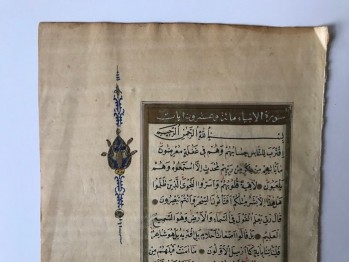 سورة الانبياء مائة وعشرون ايات
بسم الله الرحمن الرحيم
اقترب للناس حسابهم وهم في غفلة معرضون
ما يأتيهم من ذكر من ربهم محدث الا استمعوه وهم
يلعبون لاهية قلوبهم واسروا النجوى الذين ظلموا
هل هذا الا بشر مثلكم افتأتون السحر وانتم تبصرون
قال ربي يعلم القول في السماء والارض وهو السميع
العليم بل قالوا اضغاث احلام بل افتريه بل هو شاعر
فليأتنا باية كما ارسل الاولون ما امنت قبلهم من